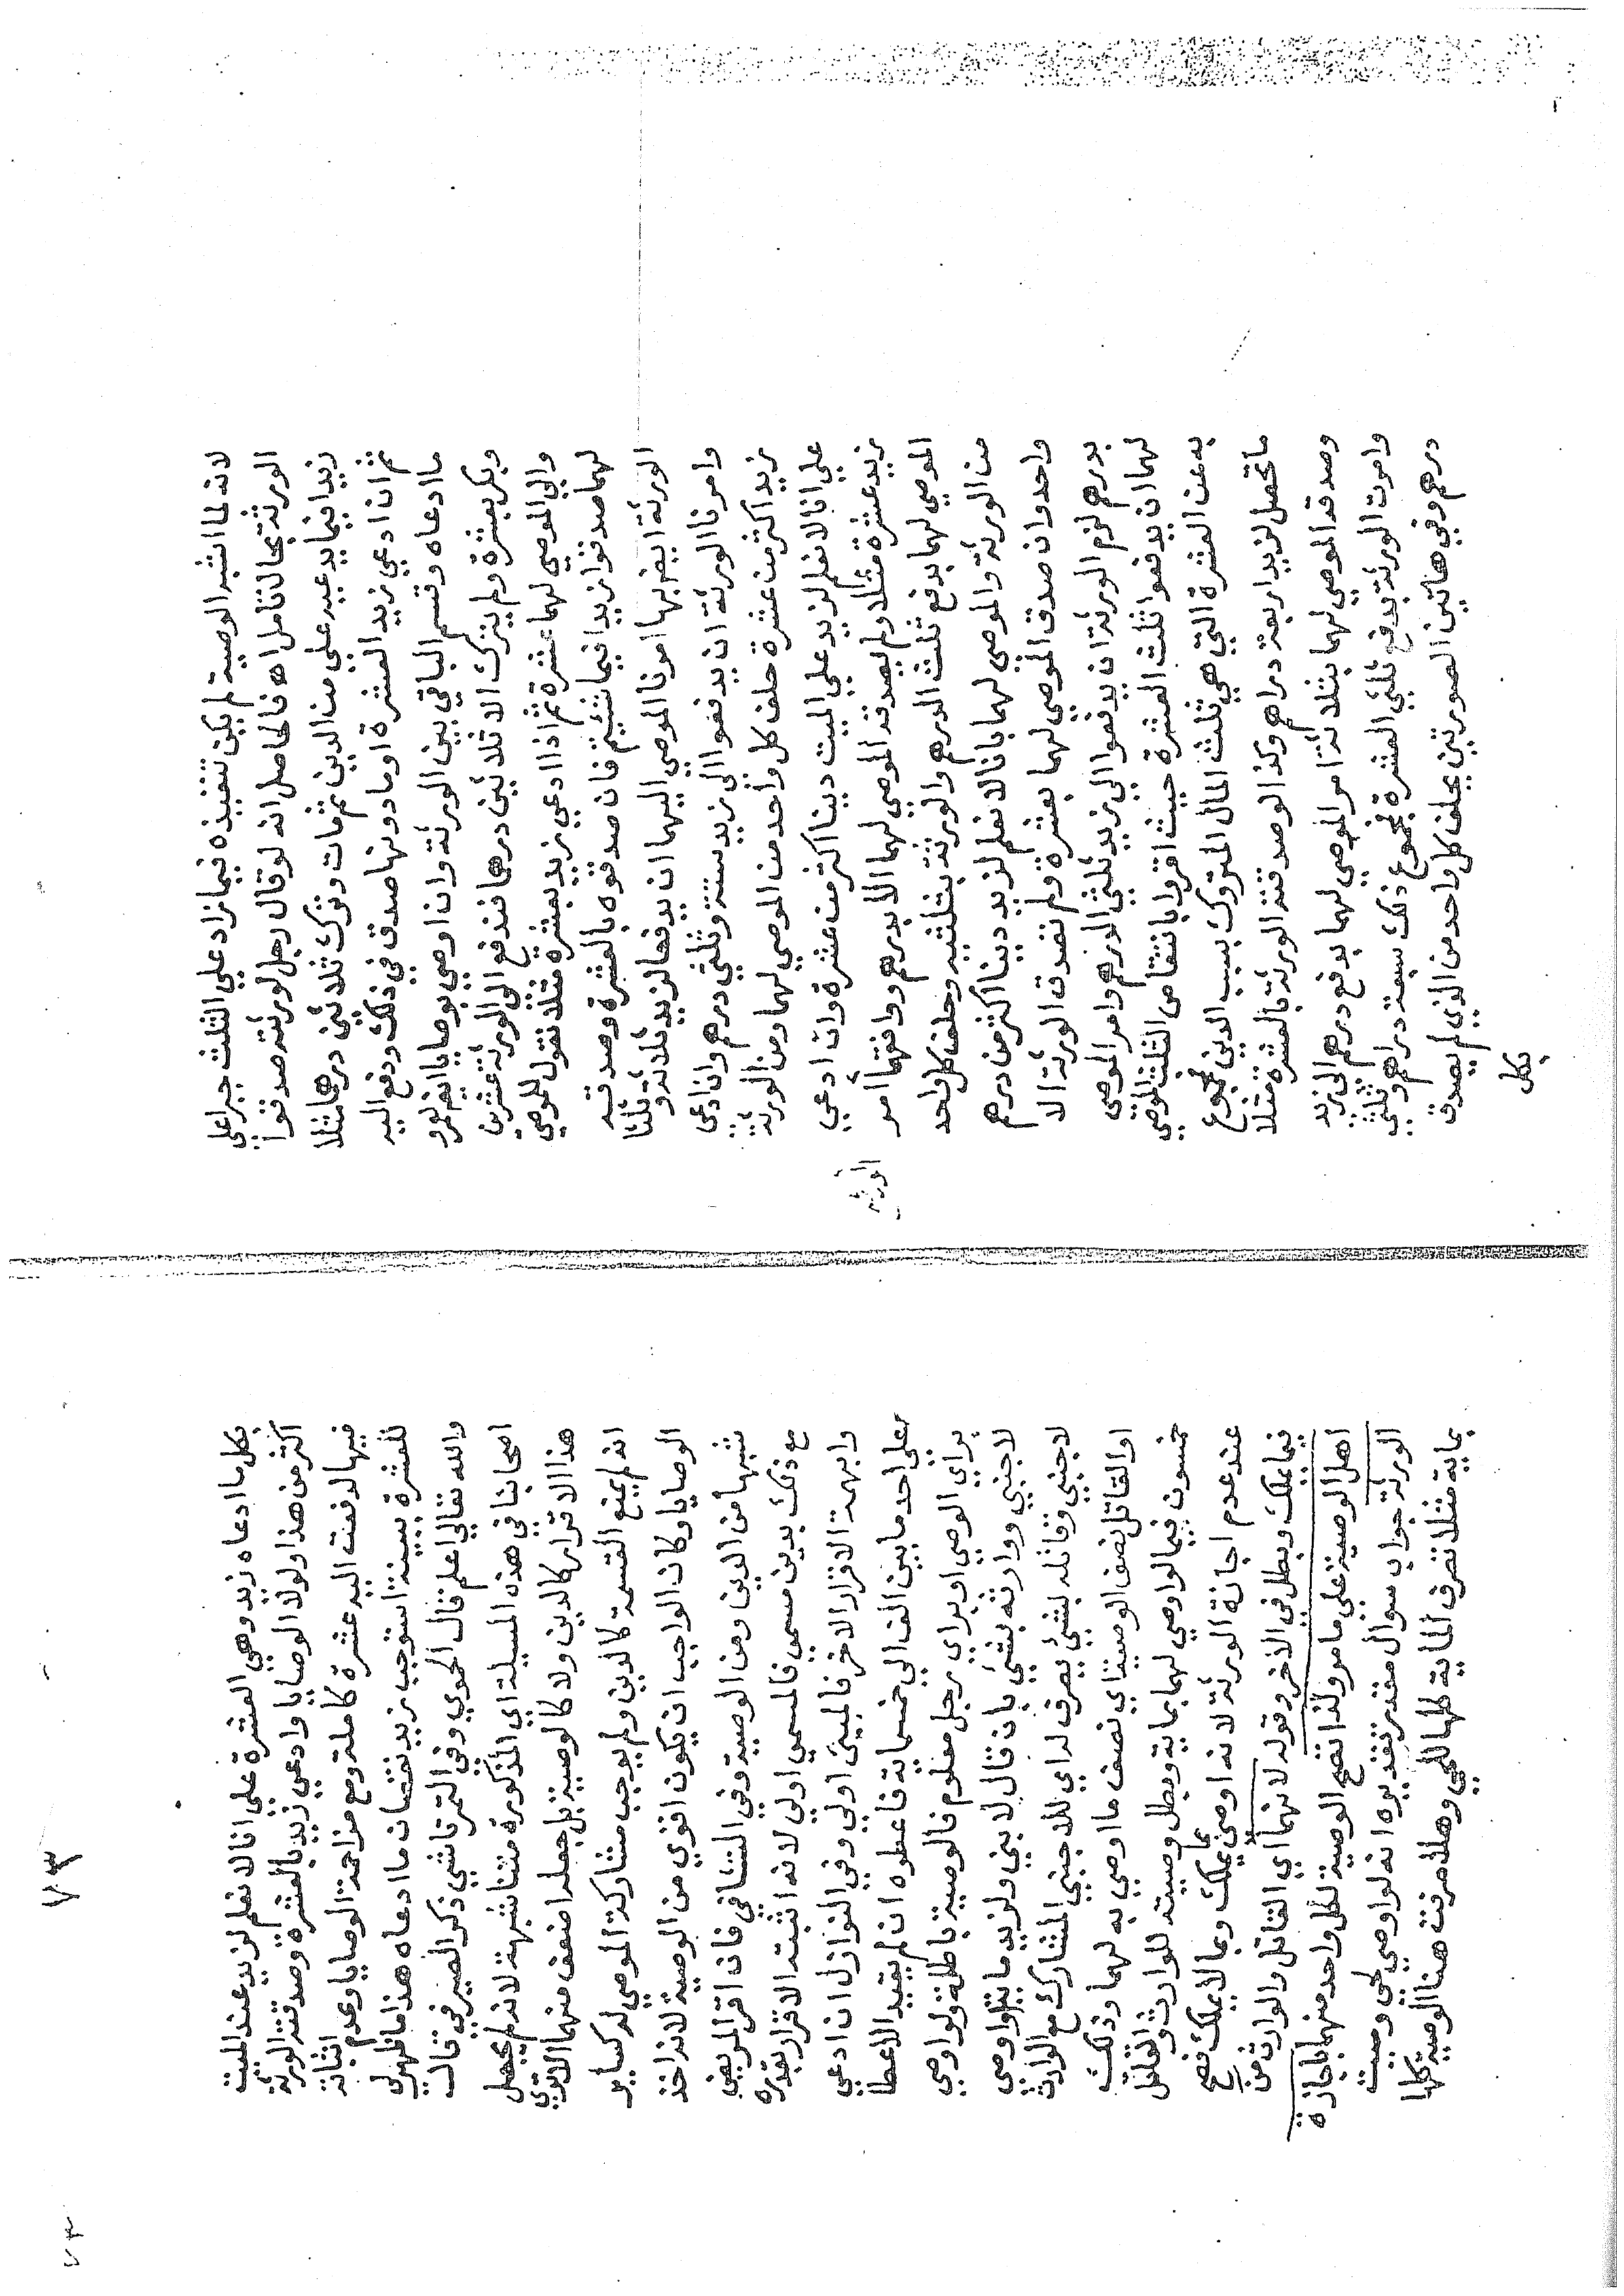 لانه لما اشبه الوصية لم يكن تنفيذه فيما زاد علي الثلث جبرا علي
الورثة بحالة تامل اه فالحاصل انه لو قال رجل لورثته صدقوا
زيدا فيما يدعيه علي من الدين ثم مات وترك ثلاثين درهما مثلا
ثم ان ادعي زيد العشرة او ما دونها صدق في ذلك ودفع اليه
ما ادعاه وقسم الباقي بين الورثة وان اوصي بوصايا ايضا لعمرو
وبكر بعشرة ولم يترك الا ثلاثين درهما فندفع الي الورثة عشرين
والي الموصي لهما عشرة ثم اذا ادعي زيد بعشرة مثلا نقول للموصي
لهما صدقوا زيدا فيما شئتم فان صدقوه بالعشرة وصدقته
الورثة ايضا بها امرنا الموصي اليهما ان يدفعا لزيد ثلاثة وثلثا
وامرنا الورثة ان يدفعوا الي زيد ستة وثلثي درهم وان ادعي
زيد اكثر من عشرة حلف كل واحد من الموصي لهما ومن الورثة
علي انا لا نعلم لزيد علي الميت دينا اكثر من عشرة وان ادعي
زيد عشرة مثلا ولم يصدقه الموصي لهما الا بدرهم ووافقهما امر
الورثة
الموصي لهما بدفع ثلث الدرهم والورثة بثلثيه وحلف كل واحد
من الورثة والموصي لهما بانا لا نعلم لزيد دينا اكثر من درهم
واحد وان صدق الموصي لهما بعشرة ولم تصدق الورثة الا
بدرهم لزم الورثة ان يدفعوا الي زيد ثلثي الدرهم وامر الموصي
لهما ان يدفعوا ثلث العشرة حيث اقروا بانتقاص الثلث الموصي
به عن العشرة التي هي ثلث المال المتروك بسبب الدين فمجموع
ما تحصل لزيد اربعة دراهم وكذا لو صدقته الورثة بالعشرة مثلا
وصدقه الموصي لهما بثلاثة امر الموصي لهما بدفع درهم الي زيد
وامرت الورثة بدفع ثلثي العشرة فمجموع ذلك سبعة دراهم وثلثي
درهم وفي هاتين الصورتين يحلف كل واحد من الذي لم يصدق
بكل
٧٣
بكل ما ادعاه زيد وهي العشرة علي انا لا نعلم لزيد عند الميت
اكثر من هذا ولولا الوصايا وادعي زيد بالعشرة وصدقته الورثة
فيها لدفعت اليه عشرة كاملة ومع مزاحمة الوصايا وعدم اثباته
للعشرة ببينة استوجب زيد نقصان ما ادعاه هذا ما ظهر لي
والله تعالي اعلم قال الحموي وفي التمرتاشي ذكر الضرير في قالت
اصحابنا في هذه المسيلة اي المذكورة متنا شبهة لانه لم يحصل
هذا الاقرار كالدين ولا كالوصية بل جعله اضعف منهما الا تري
انه لم يمنع القسمة كالدين ولم يوجب مشاركة الموصي له كساير
الوصايا وكان الواجب ان يكون اقوي من الوصية لانه اخذ
شبها من الدين ومن الوصية وفي النتا في فان اقر المريض
مع ذلك بدين مسمي فالمسمي اولي لانه اثبته الاقرار بقدره
وابهمه الاقرار الاخر فالمبين اولي وفي النوازل ان ادعي
علي احد ما بين الف الي خمسماية فاعطوه ان لم يقيد الاعطا
براي الوصي او براي رجل معلوم فالوصية باطلة ولو اوصي
لاجنبي ووارثه بشي بان قال لابني ولزيد ماية او اوصي
لاجنبي وقاتله بشي يصرف له اي للاجنبي المشارك مع الوارث
او القاتل نصف الوصية اي نصف ما اوصي به لهما وذلك
خمسون فيما لو اوصي لهما بماية وبطل وصيته للوارث والقاتل
عند عدم اجازة الورثة لانه اوصي بما يملك وبما لا يملك فصح
فيما يملك وبطل في الاخر وقوله لانهما اي القاتل والوارث من
اهل الوصية علي ما مر ولذا تصح الوصية لكل واحد منهما باجازة
الورثة جواب سوال مقدر تقديره انه لو اوصي لحي وميت
بماية مثلا تصرف الماية كلها للحي وهلا صرفت هنا الوصية كلها